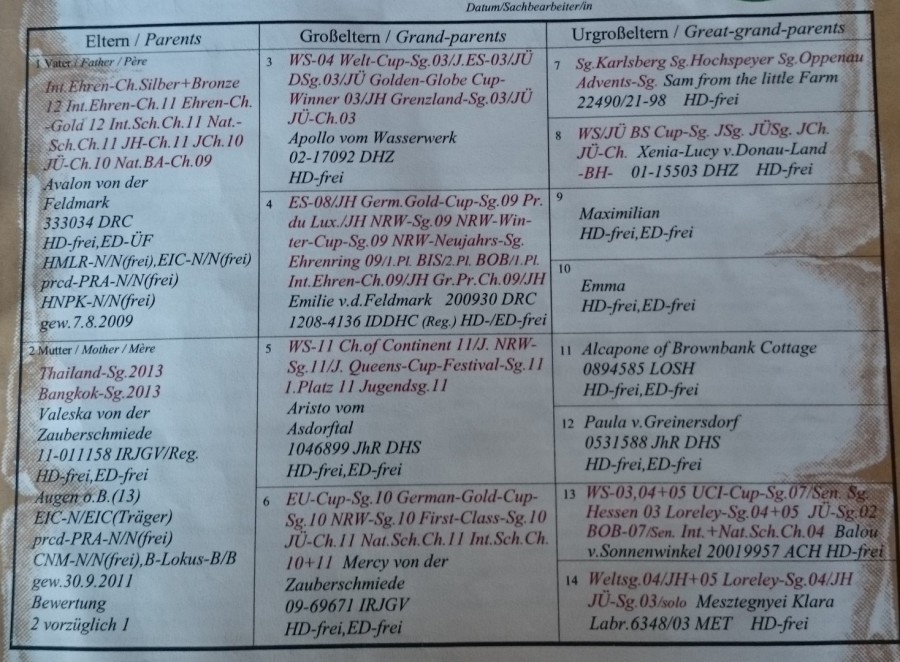 Datum/Sachbearbeiter/in
Eltern / Parents
1 Vater / Father / Père
Int.Ehren-Ch.Silber+Bronze
12 Int.Ehren-Ch.11 Ehren-Ch.
-Gold 12 Int.Sch.Ch.11 Nat.-
Sch.Ch.11 JH-Ch.11 JCh.10
JÜ-Ch.10 Nat.BA-Ch.09
Avalon von der
Feldmark
333034 DRC
HD-frei,ED-ÜF
HMLR-N/N(frei),EIC-N/N(frei)
prcd-PRA-N/N(frei)
HNPK-N/N(frei)
gew.7.8.2009
2 Mutter / Mother / Mère
Thailand-Sg.2013
Bangkok-Sg.2013
Valeska von der
Zauberschmiede
11-011158 IRJGV/Reg.
HD-frei,ED-frei
Augen o.B.(13)
EIC-N/EIC(Träger)
prcd-PRA-N/N(frei)
CNM-N/N(frei),B-Lokus-B/B
gew.30.9.2011
Bewertung
2 vorzüglich 1
Großeltern / Grand-parents
3 WS-04 Welt-Cup-Sg.03/J.ES-03/JÜ
DSg.03/JÜ Golden-Globe Cup-
Winner 03/JH Grenzland-Sg.03/JÜ
JÜ-Ch.03
Apollo vom Wasserwerk
02-17092 DHZ
HD-frei
4 ES-08/JH Germ.Gold-Cup-Sg.09 Pr.
du Lux./JH NRW-Sg.09 NRW-Win-
ter-Cup-Sg.09 NRW-Neujahrs-Sg.
Ehrenring 09/1.Pl. BIS/2.Pl. BOB/1.Pl.
Int.Ehren-Ch.09/JH Gr.Pr.Ch.09/JH
Emilie v.d.Feldmark 200930 DRC
1208-4136 IDDHC (Reg.) HD-/ED-frei
5 WS-11 Ch.of Continent 11/J. NRW-
Sg.11/J. Queens-Cup-Festival-Sg.11
1.Platz 11 Jugendsg.11
Aristo vom
Asdorftal
1046899 JhR DHS
HD-frei,ED-frei
6 EU-Cup-Sg.10 German-Gold-Cup-
Sg.10 NRW-Sg.10 First-Class-Sg.10
JÜ-Ch.11 Nat.Sch.Ch.11 Int.Sch.Ch.
10+11 Mercy von der
Zauberschmiede
09-69671 IRJGV
HD-frei,ED-frei
Urgroßeltern / Great-grand-parents
7 Sg.Karlsberg Sg.Hochspeyer Sg.Oppenau
Advents-Sg. Sam from the little Farm
22490/21-98 HD-frei
8 WS/JÜ BS Cup-Sg. JSg. JÜSg. JCh.
JÜ-Ch. Xenia-Lucy v.Donau-Land
-BH- 01-15503 DHZ HD-frei
9
Maximilian
HD-frei,ED-frei
10
Emma
HD-frei,ED-frei
11 Alcapone of Brownbank Cottage
0894585 LOSH
HD-frei,ED-frei
12 Paula v.Greinersdorf
0531588 JhR DHS
HD-frei,ED-frei
13 WS-03,04+05 UCI-Cup-Sg.07/Sen. Sg.
Hessen 03 Loreley-Sg.04+05 JÜ-Sg.02
BOB-07/Sen. Int.+Nat.Sch.Ch.04 Balou
v.Sonnenwinkel 20019957 ACH HD-frei
14 Weltsg.04/JH+05 Loreley-Sg.04/JH
JÜ-Sg.03/solo Mesztegnyei Klara
Labr.6348/03 MET HD-frei